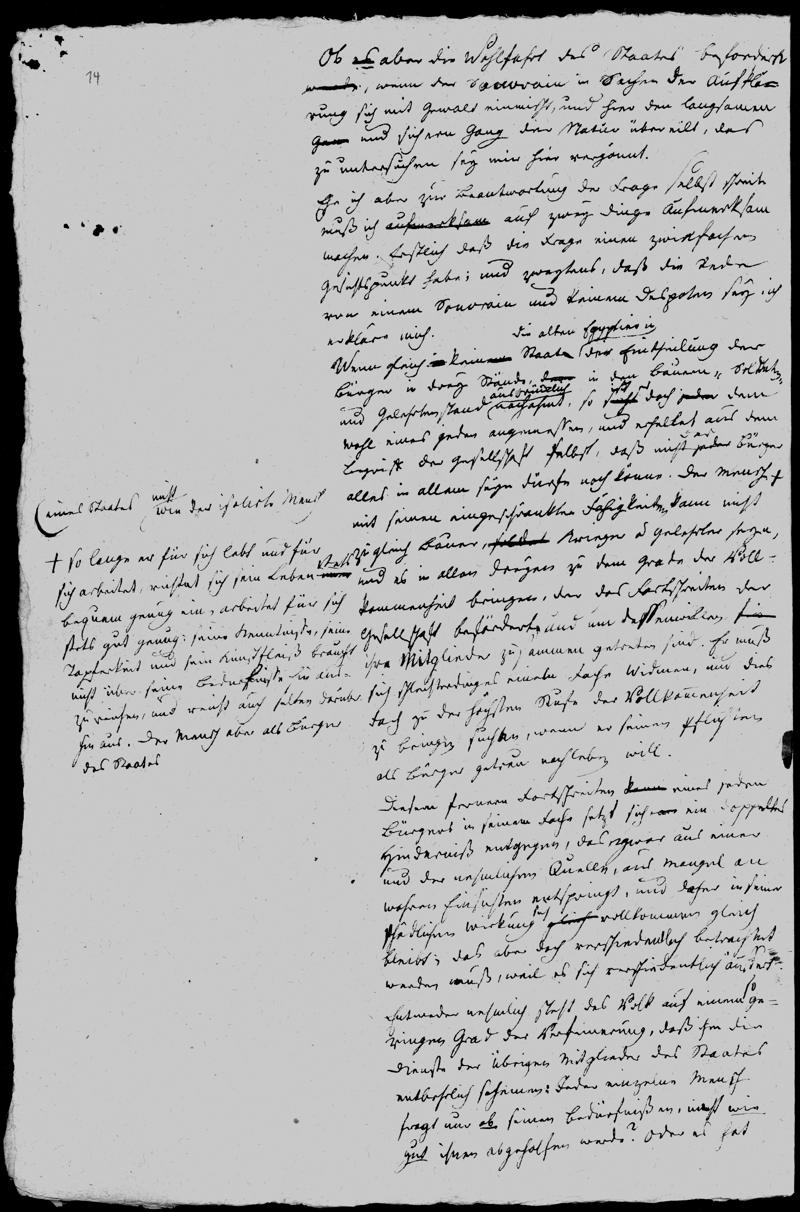 14
Ob es aber die Wohlfahrt des Staates befördert
werde, wenn der Souvrain in Sachen der Aufklä-
rung sich mit Gewalt einmischt, und hier den langsamen
Gan und sichern Gang der Natur übereilt, das
zu untersuchen sey mir hier vergönnt.
Ehe ich aber zur Beantwortung der Frage selbst schreite
muß ich aufmerksam auf zwey Dinge Aufmerksam
machen. Erstlich daß die Frage einen zwiefachen
Gesichtspunkt habe; und zweytens, daß die Rede
von einem Souvrain und keinem Despoten sey. ich
erkläre mich.
die alten Egyptier in
Wenn gleich keinem Staate der Eintheilung der
Bürger in drey Stände, in den Bauern- Soldaten-
ausdrücklich
und Gelehrtenstand nachahmt, so ist doch jeder dem
Wohl eines jeden angemessen, und erhellet aus dem
Begriff der Gesellschaft selbst, daß nicht jeder Bürger
alles in allem seyn dürfe noch könne. Der Mensch +
mit seinen eingeschränkten Fähigkeiten kann nicht
zugleich Bauer, Soldat Krieger u Gelehrter seyn,
und es in allen dreyen zu dem Grade der Voll-
kommenheit bringen, der das Fortschreiten der
Gesellschaft befördert und um dessenwillen sie
ihre Mitglieder zusammen getreten sind. Er muß
sich schlechterdinges einem Fache widmen, und dies
doch zu der höchsten Stufe der Vollkommenheit
zu bringen suchen, wenn er seinen Pflichten
als Bürger getreu nachleben will.
Diesem fernern Fortschreiten kann eines jeden
Bürgers in seinem Fache setzt sich ein doppeltes
Hinderniß entgegen, das zwar aus einer
und der nehmlichen Quelle, aus Mangel an
wahren Einsichten entspringt, und daher in seiner
schädlichen Wirkung sich gleich vollkommen gleich
bleibt; das aber doch verschiedentlich betrachtet
werden muß, weil es sich verschiedentlich äußert.
Entweder nehmlich steht das Volk auf einem so ge-
ringen Grad der Verfeinerung, daß ihm die
Dienste der übrigen Mitglieder des Staates
entbehrlich scheinen: Jeder einzelne Mensch
fragt nur ob seinen Bedürfnißen, nicht wie
gut ihnen abgeholfen werde? Oder es hat
(eines Staates nicht wie der isolirte Mensch
+ so lange er für sich lebt und für
sich arbeitet, richtet sich sein Leben stets
bequem genug ein, arbeitet für sich
stets gut genug: seine Kenntniße, seine
Tapferkeit und sein Kunstfleiß braucht
nicht über seine Bedürfniße hin aus-
zureichen, und reicht auch selten darüber
hin aus. Der Mensch aber als Bürger
des Staates